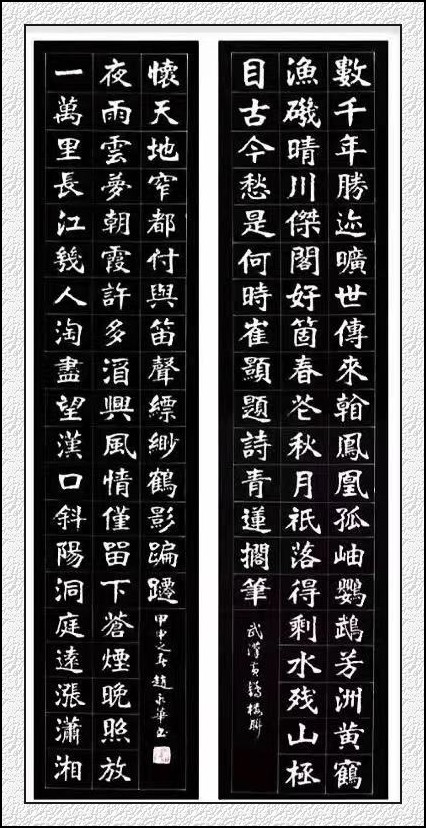 數千年勝迹曠世傳來翰鳳凰孤岫鸚鵡芳洲黃鶴
漁磯晴川傑閣好箇春花秋月祇落得剩水残山極
目古今愁是何時崔顥題詩青蓮擱筆
武漢黃鶴樓聯
一萬里長江幾人淘盡望漢口斜陽洞庭遠漲瀟湘
夜雨雲夢朝霞許多酒興風情僅留下蒼煙晚照放
懷天地窄都付與笛聲縹緲鶴影蹁躚
甲申之春趙華書